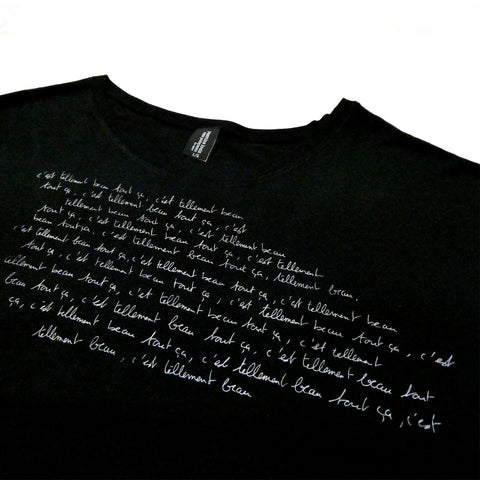 c'est tellement beau tout ça, c'est tellement beau
tout ça, c'est tellement beau tout ça,
tellement beau tout ça, c'est
tout ça, c'est tellement beau
beau tout ça, c'est tellement beau tout ça, c'est tellement
c'est tellement beau tout ça, tellement beau.
tellement beau tout ça, c'est tellement beau tout ça, c'est tellement beau
tout ça, c'est tellement beau tout ça, c'est tellement beau tout ça, c'est
tellement beau tout ça, c'est tellement beau tout ça, c'est tellement
beau tout ça, c'est tellement beau tout ça, c'est tellement beau tout
ça, c'est tellement beau tout ça, c'est tellement beau tout ça, c'est
tellement beau, c'est tellement beau